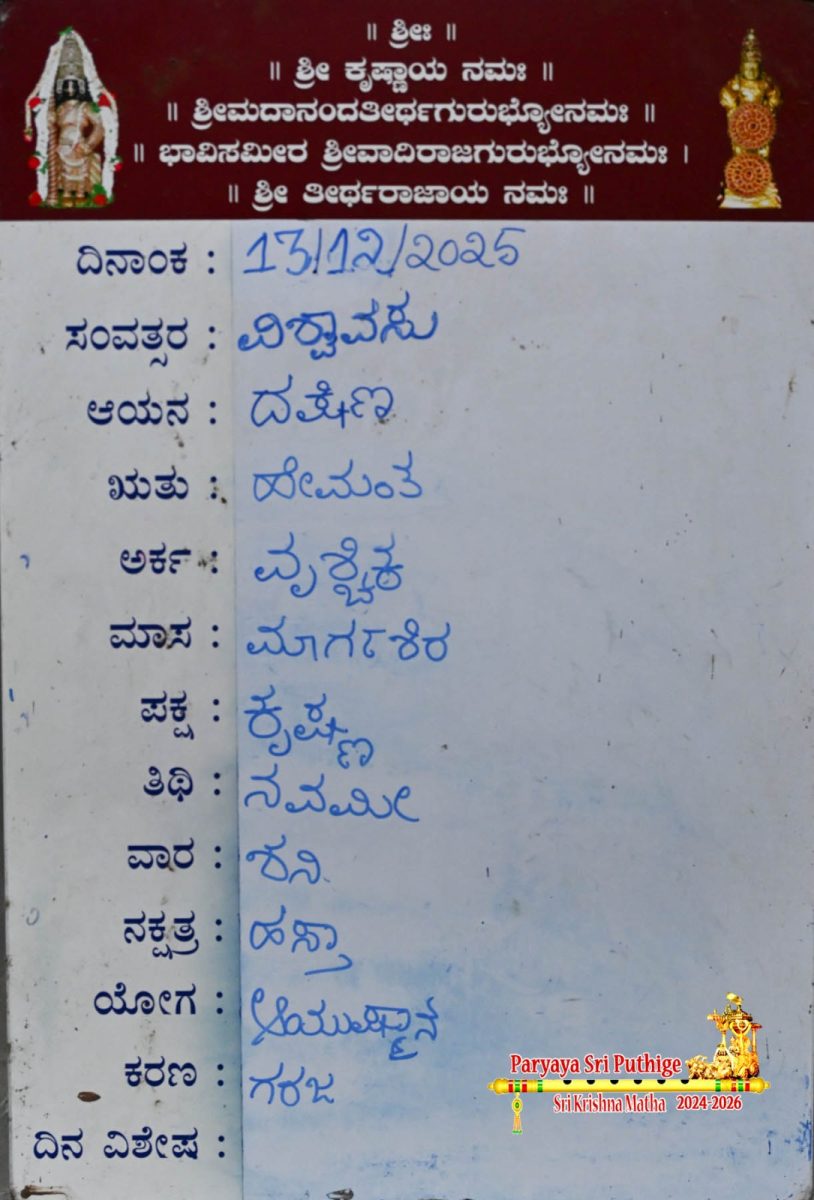 ॥ ಶ್ರೀಃ ॥
॥ ಶ್ರೀ ಕೃಷ್ಣಾಯ ನಮಃ ॥
॥ ಶ್ರೀಮದಾನಂದತೀರ್ಥಗುರುಭ್ಯೋನಮಃ ॥
॥ ಭಾವಿಸಮೀರ ಶ್ರೀವಾದಿರಾಜಗುರುಭ್ಯೋನಮಃ ।
॥ ಶ್ರೀ ತೀರ್ಥರಾಜಾಯ ನಮಃ ॥
ದಿನಾಂಕ : 13/12/2025
ಸಂವತ್ಸರ : ವಿಶ್ವಾವಸು
ಆಯನ : ದಕ್ಷಿಣ
ಋತು : ಹೇಮಂತ
ಅರ್ಕ : ವೃಶ್ಚಿಕ
ಮಾಸ : ಮಾರ್ಗಶಿರ
ಪಕ್ಷ : ಕೃಷ್ಣ
ತಿಥಿ : ನವಮೀ
ವಾರ : ಶನಿ.
ನಕ್ಷತ್ರ : ಹಸ್ತಾ
ಯೋಗ : ಆಯುಷ್ಮಾನ
ಕರಣ : ಗರಜ
ದಿನ ವಿಶೇಷ :
Paryaya Sri Puthige
Sri Krishna Matha 2024-2026